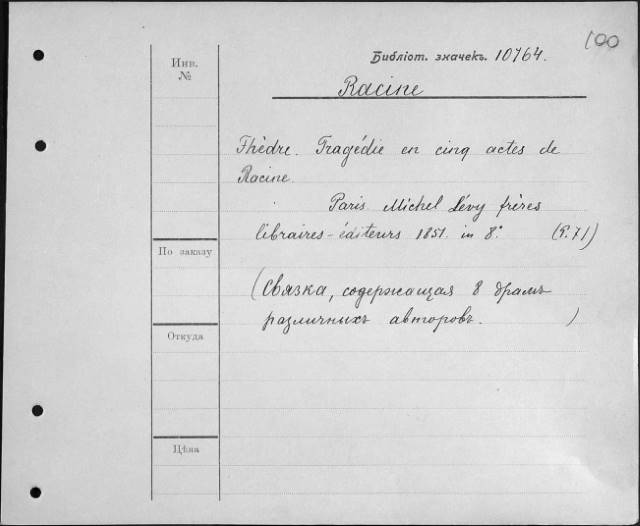 100
Библіот. значекъ. 10764.
Racine
Инв.
№
Phèdre. Tragédie en cinq actes de
Racine.
Paris Michel Lévy frères
libraires-éditeurs 1851. in 8°. (P.71)
(Связка, содержащая 8 драмъ
различныхъ авторовъ. )
По заказу
Откуда
Цѣна